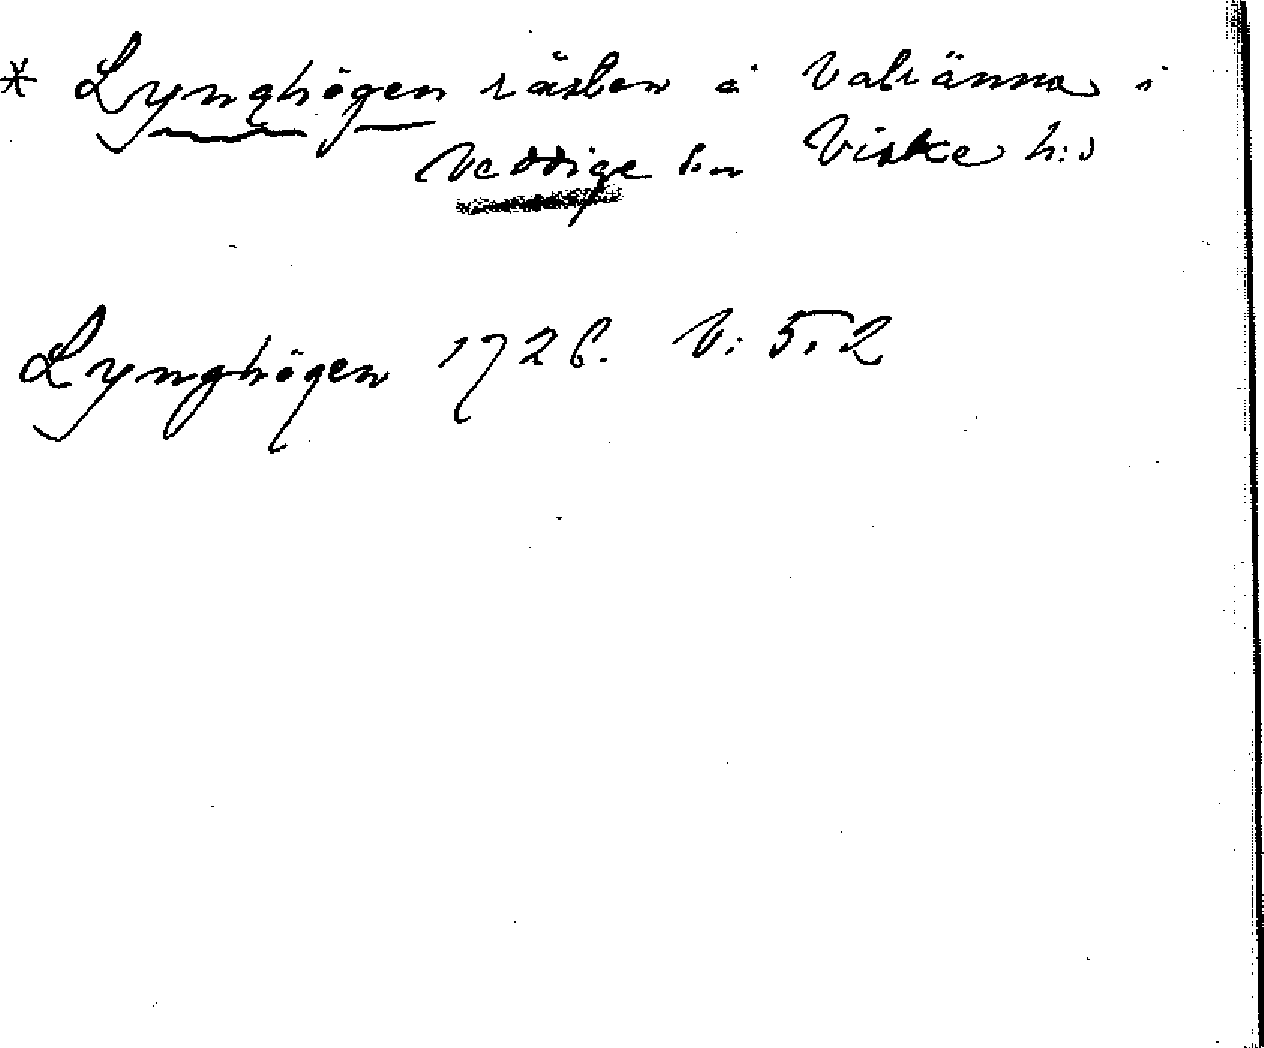 * Lynghögen råsten å Valränna i
Veddige s:n Viske h:d
Lynghögen 1726. V: 5.2